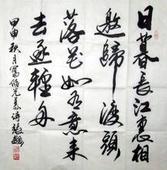 日暮長江裏相
邀歸渡頭
落花如有意来
去逐輕舟
甲申秋月寫儲光羲詩